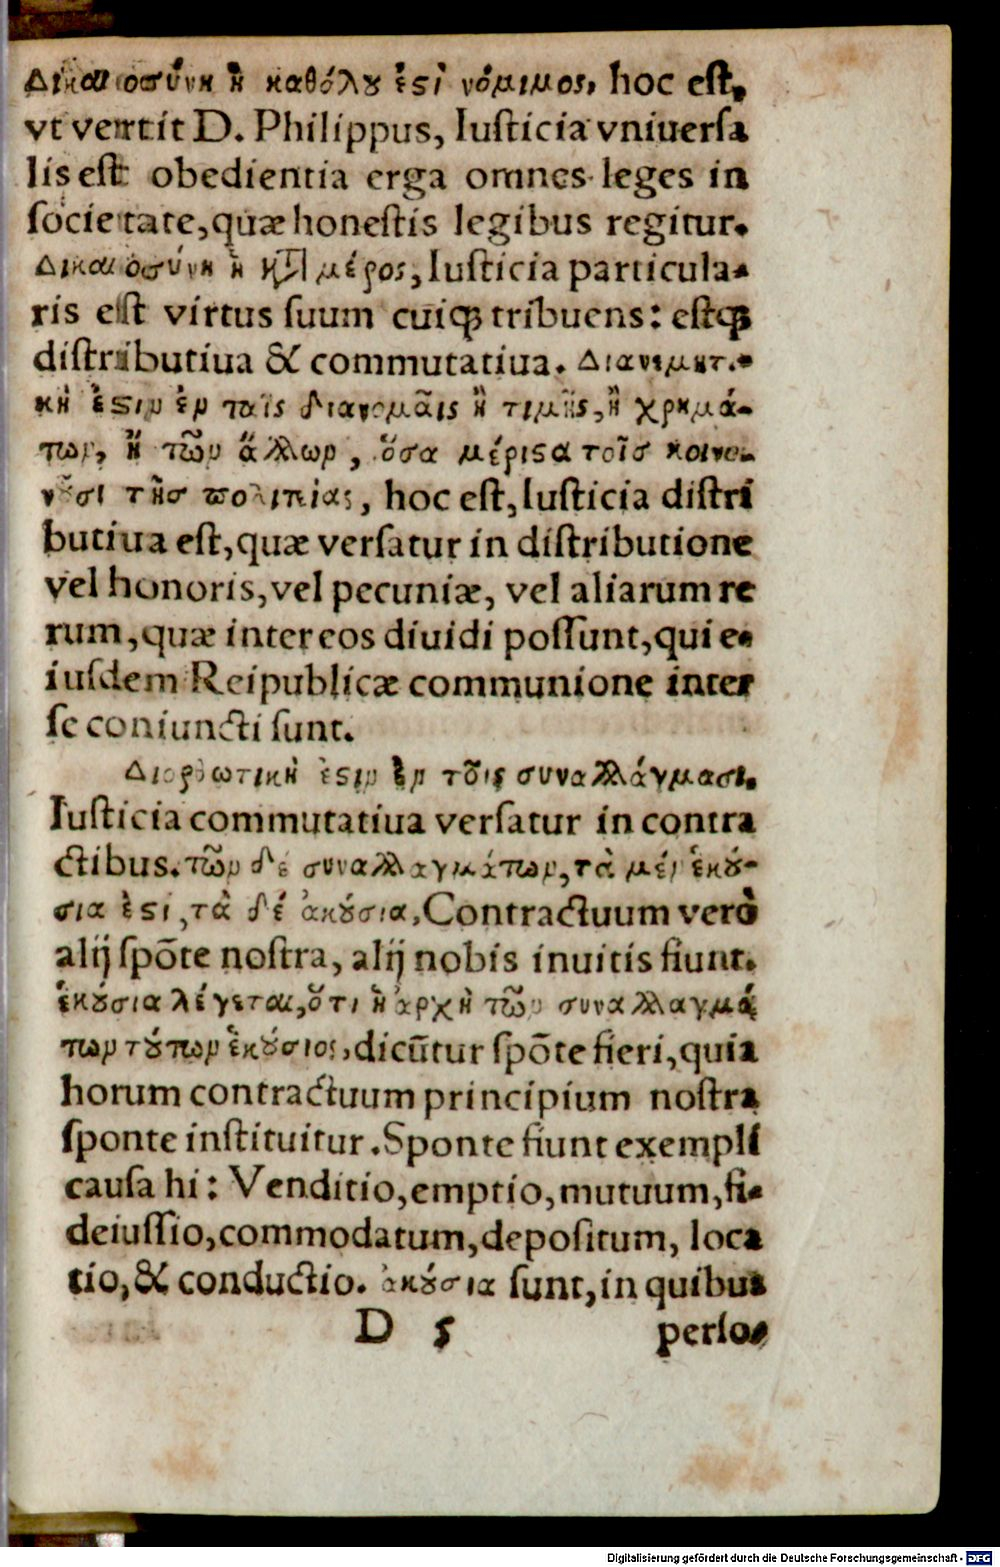 Δικαιοσύνη ἡ καθόλου ἐϛὶ νόμιμος, hoc eſt,
vt vertit D. Philippus, Iuſticia vniuerſa
lis eſt obedientia erga omnes leges in
ſocietate, quæ honeſtis legibus regitur.
Δικαιοσύνη ἡ κατὰ μέρος, Iuſticia particula-
ris eſt virtus ſuum cuiqꝫ tribuens: eſtqꝫ
diſtributiua & commutatiua. Διανεμητι-
κὴ ἐϛιν ἐν ταῖς διανομαῖς ἢ τιμῆς, ἢ χρημά-
των, ἢ τῶν ἄλλων, ὅσα μέριϛα τοῖσ κοινω-
νοῦσι τῆσ πολιτείας, hoc eſt, Iuſticia diſtri
butiua eſt, quæ verſatur in diſtributione
vel honoris, vel pecuniæ, vel aliarum re
rum, quæ inter eos diuidi poſſunt, qui e-
iuſdem Reipublicæ communione inter
ſe coniuncti ſunt.
Διορθωτικὴ ἐϛιν ἐν τοῖς συναλλάγμασι.
Iuſticia commutatiua verſatur in contra
ctibus. τῶν δὲ συναλλαγμάτων, τὰ μὲν ἑκού-
σια ἐϛι, τὰ δὲ ἀκούσια, Contractuum verò
alij ſpōte noſtra, alij nobis inuitis fiunt.
ἑκούσια λέγεται, ὅτι ἡ ἀρχὴ τῶν συναλλαγμά
των τούτων ἑκούσιος, dicūtur ſpōte fieri, quia
horum contractuum principium noſtra
ſponte inſtituitur. Sponte fiunt exempli
cauſa hi: Venditio, emptio, mutuum, fi-
deiuſſio, commodatum, depoſitum, loca
tio, & conductio. ἀκούσια ſunt, in quibus
D 5 perſo-
Digitalisierung gefördert durch die Deutsche Forschungsgemeinschaft - DFG